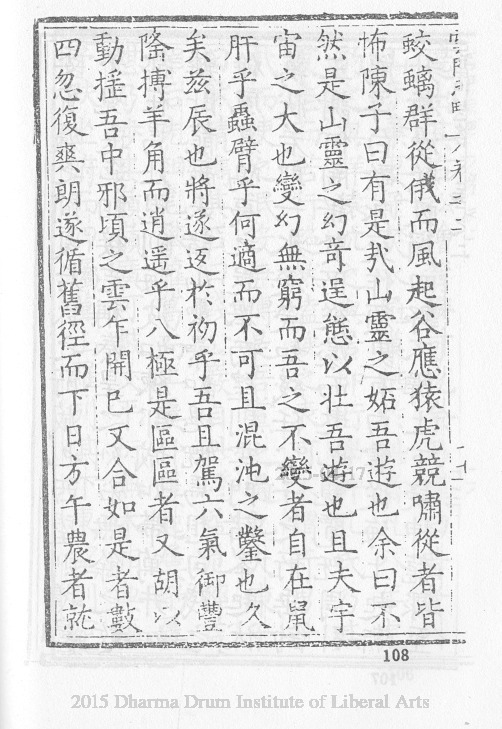 蛟螭群從俄而風起谷應猿虎競嘯從者皆
怖陳子曰有是哉山靈之妬吾遊也余曰不
然是山靈之幻奇逞態以壯吾遊也且夫宇
宙之大也變幻無窮而吾之不變者自在鼠
肝乎蟲臂乎何適而不可且混沌之鑿也久
矣茲辰也將遂返於初乎吾且駕六氣御豐
隆摶羊角而逍遥乎八極是區區者又胡以
動揺吾中邪頃之雲乍開已又合如是者數
四忽復爽朗遂循舊徑而下日方午農者就
108
2015 Dharma Drum Institute of Liberal Arts